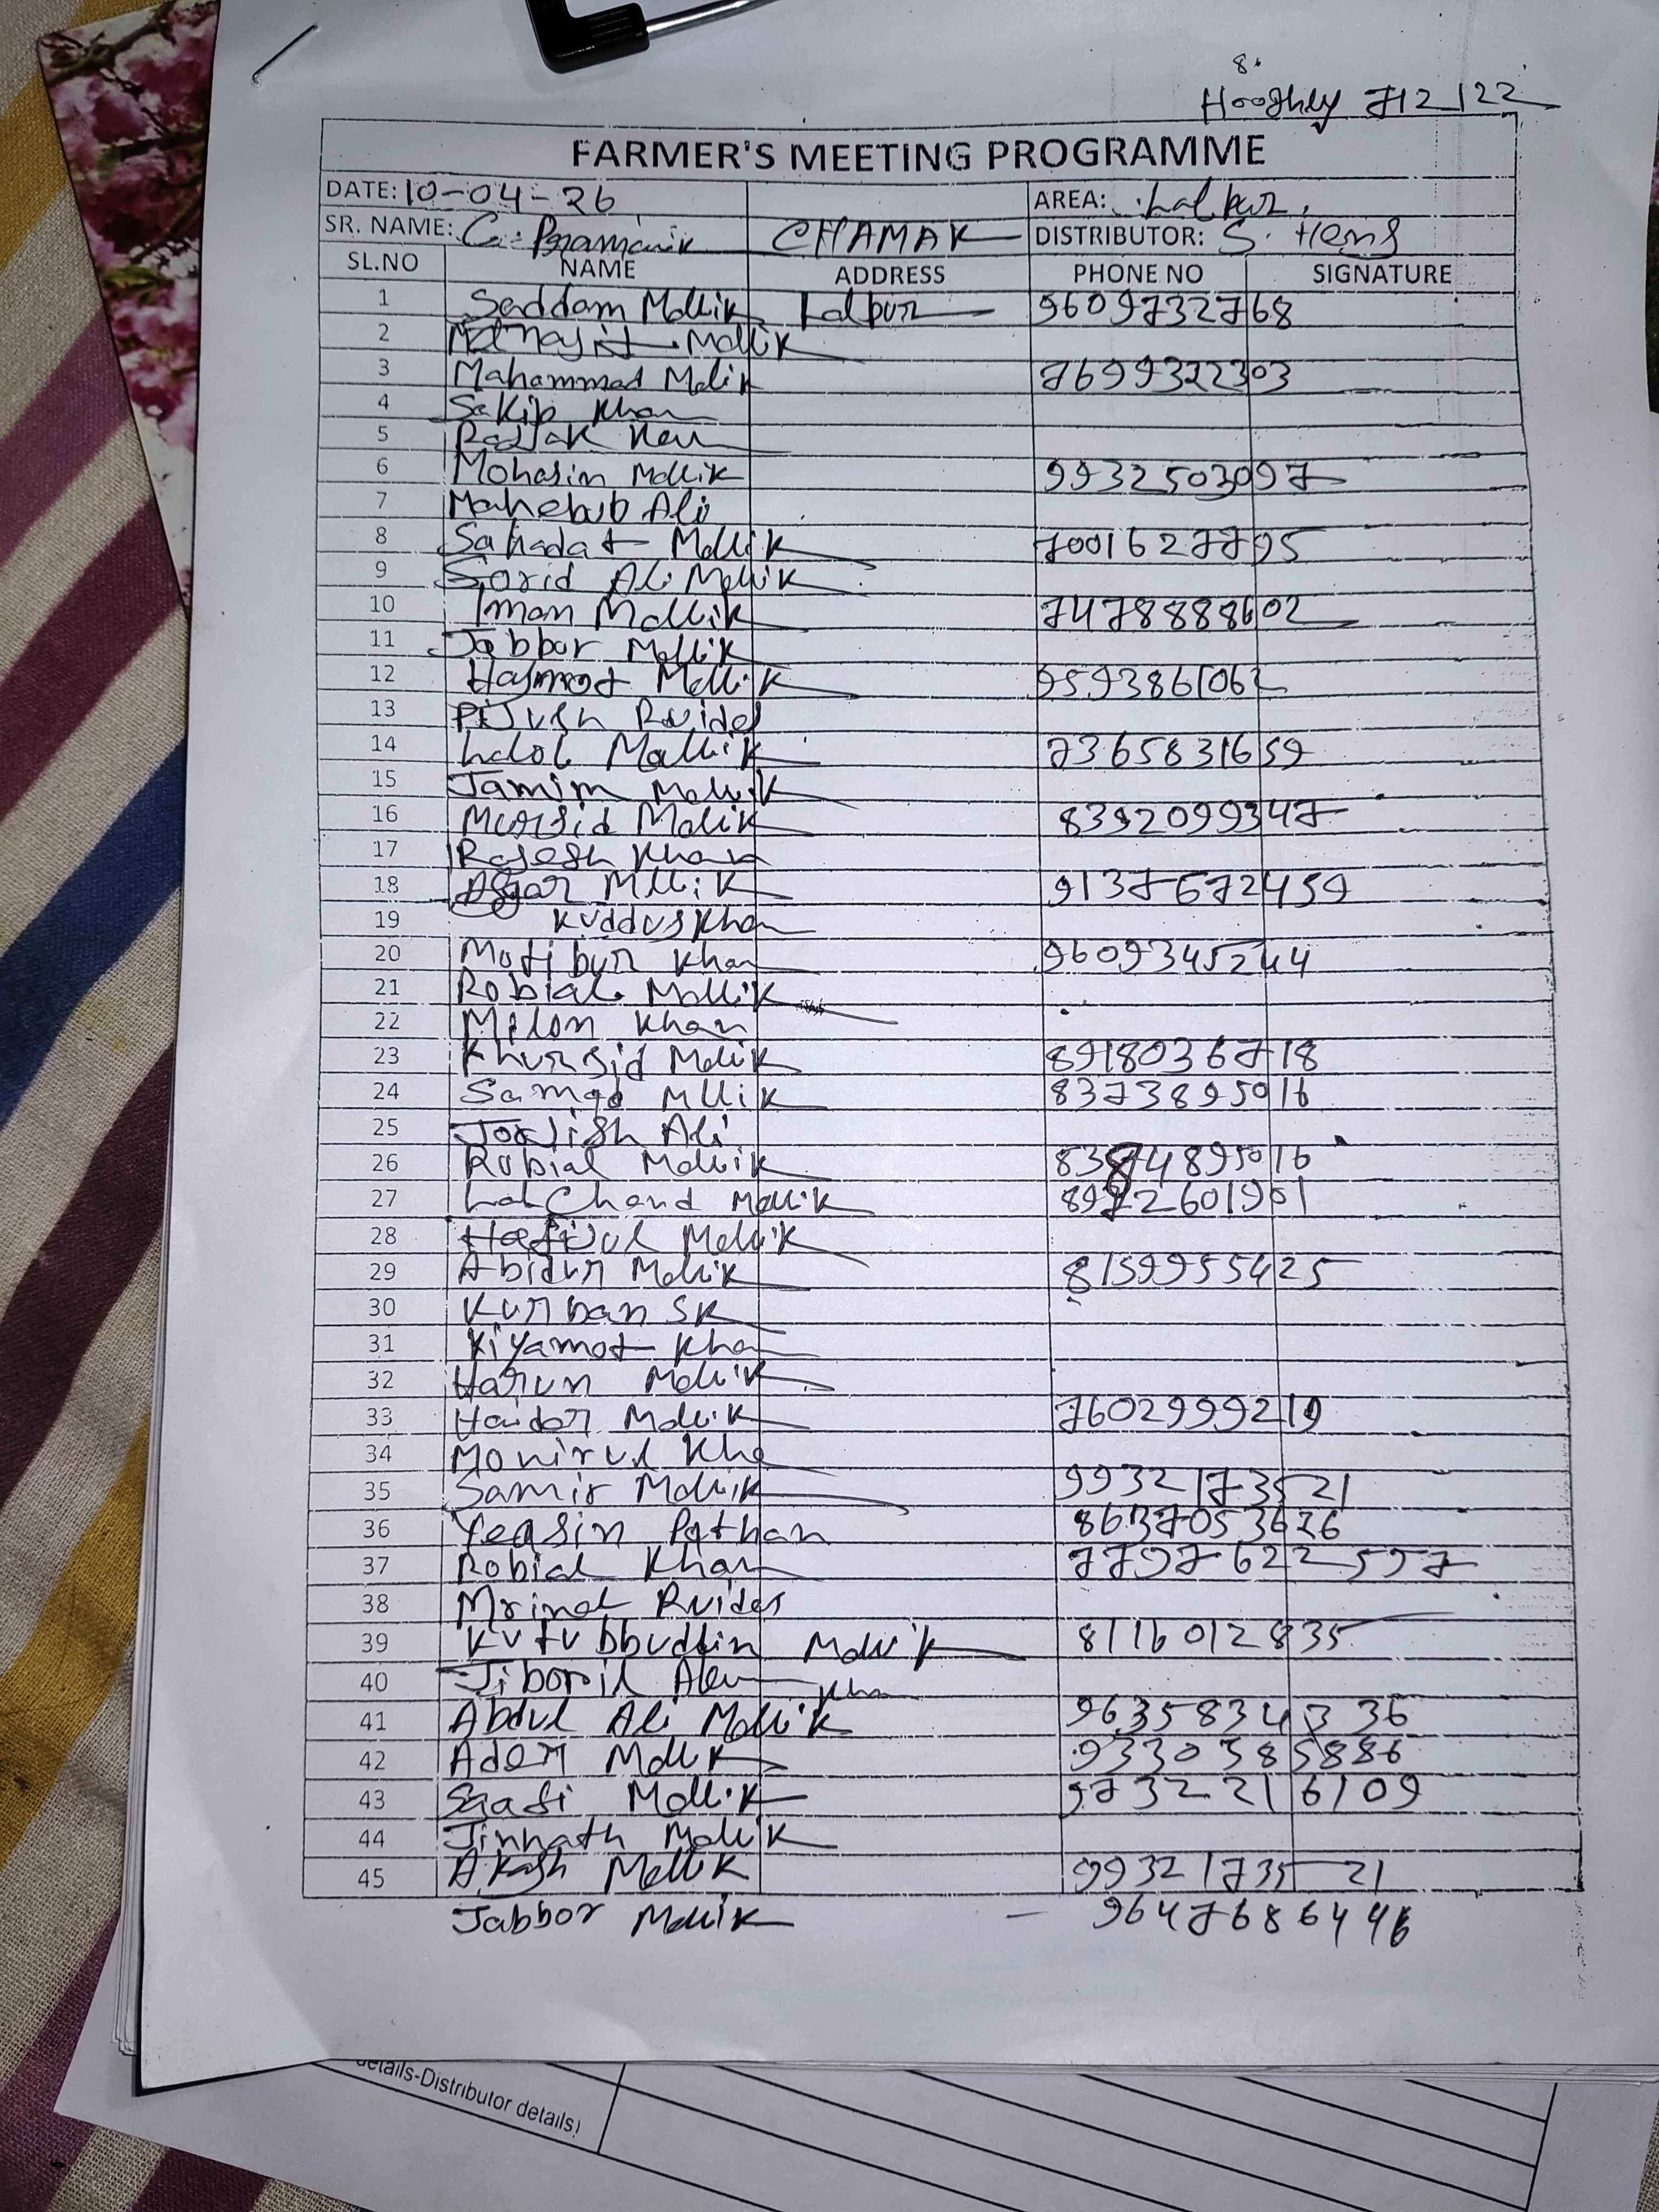 8.
Hooghly 712122
FARMER'S MEETING PROGRAMME
DATE: 10-04-26 AREA: Lalpur
SR. NAME: C. Pramanik CHAMAK DISTRIBUTOR: S.
SL.NO NAME ADDRESS PHONE NO SIGNATURE
1 Saddam Mollik Lalpur 9609732768
2 Mollik
3 Mahammad Molik 7699322303
4 Sakib Khan
5 Rajjak
6 Mohasin Mollik 9932503097
7 Mahebub Ali
8 Sahadat Mollik 7001627795
9 Sorid Ali Mollik
10 Iman Mollik 7478888602
11 Jabbar Mollik
12 Hasmot Mollik 9593861062
13 Pijush Ruidas
14 Lalol Mallik 7365831659
15 Jamim Mollik
16 Mursid Molik 8392099347
17 Rajesh Khan
18 Asgar Mllik 9137672459
19 Kuddus Khan
20 Motibur Khan 9609345244
21 Robial Mollik
22 Milon Khan
23 Khursid Molik 8918036718
24 Samad Mllik 8373895016
25 Ali
26 Robial Mollik
27 Lal Chand Mollik
28 Hafijul Mollik
29 Abidur Mollik 8159955425
30 Kurban SK
31 Kiyamot Khan
32 Harun Mollik
33 Haidor Mollik 7602999219
34 Monirul Kha
35 Samir Mollik 9932173521
36 Yeasin Pathan 8637053626
37 Robial Khan 7797622557
38 Mrinal Ruidas
39 Kutubbuddin Mollik 8116012835
40 Jiboril Khan
41 Abdul Ali Mollik 9635834336
42 Ador Mollik 9330385886
43 Mollik 9732216109
44 Jinnath Mollik
45 Akash Mollik 9932173521
Jabbor Mollik - 9647686446
details-Distributor details)